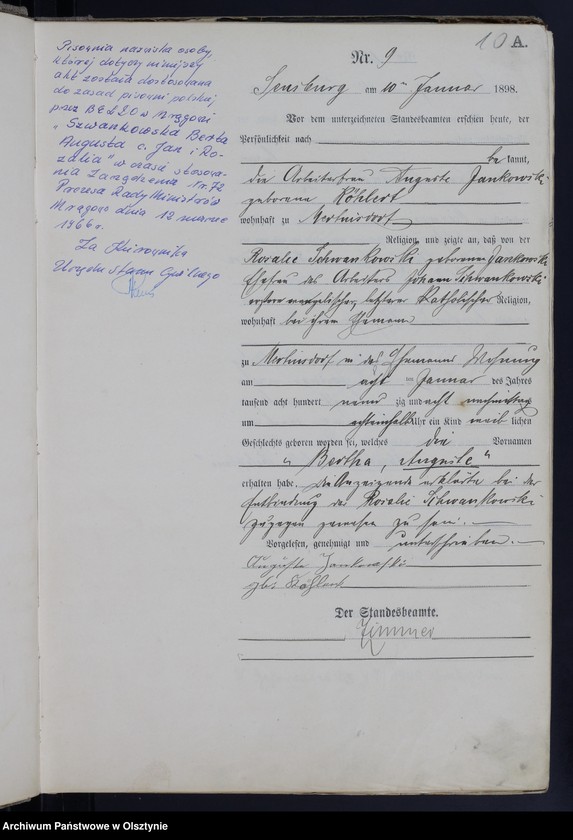 Pisownia nazwiska osoby,
której dotyczy niniejszy
akt została dostosowana
do zasad pisowni polskiej
przez
"Szwankowska Berta
Augusta c. Jan i Ro-
zalia" w czasie stosowa-
nia Zarządzenia Nr. 72
Prezesa Rady Ministrów
Mrągowo dnia 12 marca
1966 r.
Za Kierownika
Urzędu Stanu Cywilnego
10 A.
Nr. 9
Sensburg am 10ten Januar 1898.
Vor dem unterzeichneten Standesbeamten erschien heute, der
Persönlichkeit nach
be kannt,
die Arbeiterfrau Auguste Jankowski
geborene Köhlert
wohnhaft zu Mertinsdorf
Religion, und zeigte an, daß von der
Rosalie Schwankowski geborenen Jankowski
Ehefrau des Arbeiters Johann Schwankowski
erstere evangelischer, letzterer katholischer Religion,
wohnhaft bei ihrem Ehemann
zu Mertinsdorf in des Ehemanns Wohnung
am acht ten Januar des Jahres
tausend acht hundert neun zig und acht nachmittag
um achteinhalb Uhr ein Kind weib lichen
Geschlechts geboren worden sei, welches die Vornamen
"Bertha, Auguste"
erhalten habe. die Anzeigende erklärte bei der
Entbindung der Rosalie Schwankowski
zugegen gewesen zu sein.
Vorgelesen, genehmigt und unterschrieben.
Auguste Jankowski
gbr Köhlert
Der Standesbeamte.
Zimmer
Archiwum Państwowe w Olsztynie